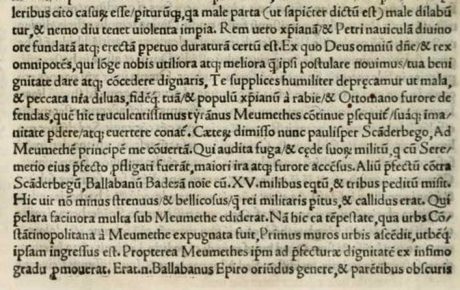 leribus cito casurũ esse/piturũq;, qa male parta (ut sapiẽter dictũ est) male dilabũ
tur, & nemo diu tenet violenta impia. Rem uero xp̃ianã & Petri nauiculã diuino
ore fundatã atq; erectã ppetuo duraturã certũ est. Ex quo Deus omniũ dñe/& rex
omnipotẽs, qui lõge nobis utiliora atq; meliora q̃ ipsi postulare nouimus/tua beni
gnitate dare atq; cõcedere dignaris, Te supplices humiliter deprecamur ut mala,
& peccata nr̃a diluas, fidẽq; tuã/& populũ xp̃ianũ à rabie/& Ottomano furore de
fendas, quẽ hic truculentissimus tyrãnus Meumethes cõtinue psequit̃/suáq; ima/
nitate pdere/atq; euertere conat̃. Cæterũ dimisso nunc paulisper Scãderbego, Ad
Meumethẽ principẽ me cõuertã. Qui audita fuga/& cęde suorũ militũ, q cũ Sere/
metio eius pfecto pfligati fuerãt, maiori ira atq; furore accẽsus. Aliũ pfectũ cõtra
Scãderbegũ, Ballabanũ Baderã noĩe cũ .XV. milibus eqtũ, & tribus peditũ misit.
Hic uir nõ minus strenuus/& bellicosus/q̃ rei militaris pitus, & callidus erat. Qui
pclara facinora multa sub Meumethe ediderat. Nã hic ea tẽpestate, qua urbs Cõ
stãtinopolitana à Meumethe expugnata fuit, Primus muros urbis ascẽdit, urbẽq;
ipsam ingressus est. Propterea Meumethes ipm̃ ad pfecturæ dignitatẽ ex infimo
gradu pmouerat. Erat.n. Ballabanus Epiro oriũdus genere, & parẽtibus obscuris